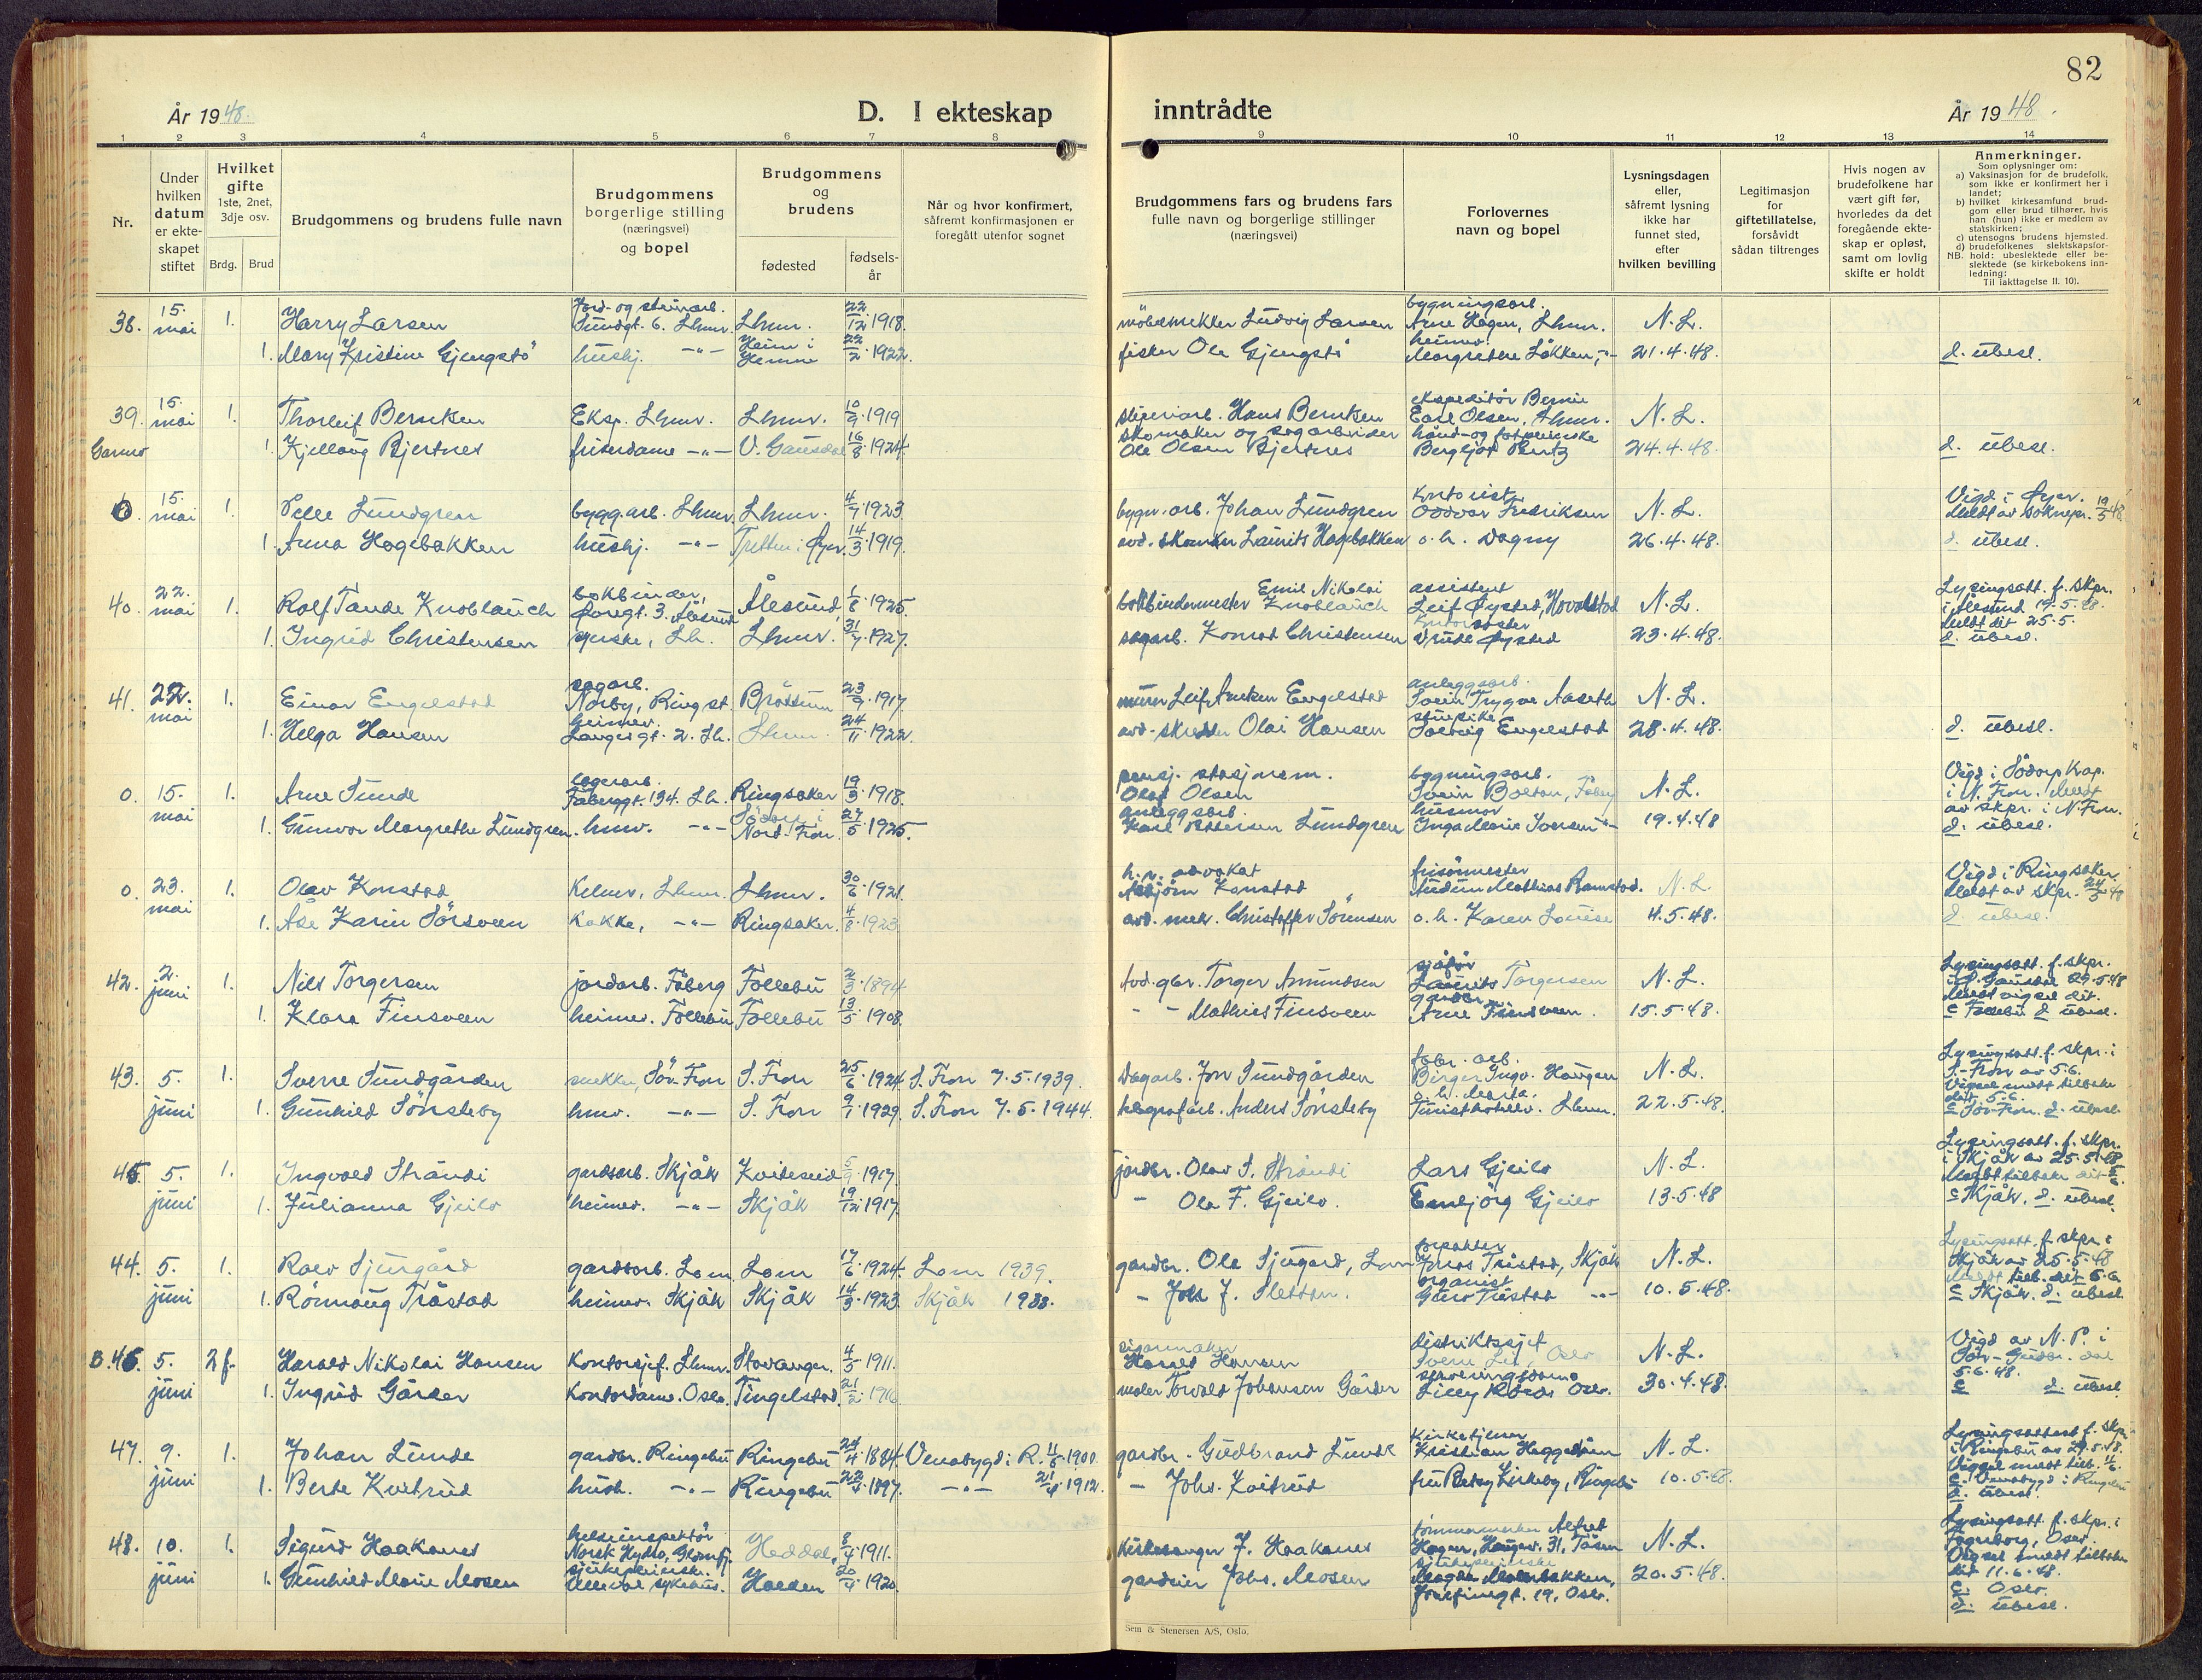 82
År 1948.
D. I ekteskap inntrådte
År 1948.
1 2 3 4 5 6 7 8 9 10 11 12 13 14
Nr.
Under hvilken datum er ekteskapet stiftet
Hvilket gifte 1ste, 2net, 3dje osv.
Brdg. Brud
Brudgommens og brudens fulle navn
Brudgommens borgerlige stilling (næringsvei) og bopel
Brudgommens og brudens
fødested
fødselsår
Når og hvor konfirmert, såfremt konfirmasjonen er foregått utenfor sognet
Brudgommens fars og brudens fars fulle navn og borgerlige stillinger (næringsvei)
Forlovernes navn og bopel
Lysningsdagen eller, såfremt lysning ikke har funnet sted, efter hvilken bevilling
Legitimasjon for giftetillatelse, forsåvidt sådan tiltrenges
Hvis nogen av brudefolkene har vært gift før, hvorledes da det foregående ekteskap er opløst, samt om lovlig skifte er holdt
Anmerkninger.
Som oplysninger om:
a) Vaksinasjon for de brudefolk, som ikke er konfirmert her i landet;
b) hvilket kirkesamfund brudgom eller brud tilhører, hvis han (hun) ikke er medlem av statskirken;
c) utensogns brudens hjemsted.
d) brudefolkenes slektskapsforhold: ubeslektede eller beslektede (se kirkebokens innledning:
NB.
Til iakttagelse II. 10).
38. 15. mai 1. Harry Larsen Jord- og steinarb. Sundgt. 6. Lhmr. Lhmr. 22/12 1918. møbelsnekker Ludvig Larsen bygningsarb. Arne Hagen, Lhmr. N.L.
1. Mary Kristine Gjengstø hushj. -"- Heim i Hemne 22/2 1922. fisker Ole Gjengstø heimev. Margrethe Løkken, -"- 21.4.48. d. ubesl.
39. 15. mai 1. Thorleif Berntsen Eksp. Lhmr. Lhmr. 10/9 1919 Hans Berntsen ekspeditør Bernie Earl Olsen, Lhmr. N.L.
1. Kjellaug Bjertnes friserdame -"- V. Gausdal 16/8 1924. skomaker og sagarbeider Ole Olsen Bjertnes hånd- og fotpleierske Bergljot Bentz 24.4.48. d. ubesl.
0. 15. mai 1. Pelle Lundgren bygg.arb. Lhmr. Lhmr. 4/7 1923 bygn.arb. Johan Lundgren kontorist Oddvar Fredriksen N.L. Vigd i Øyer. Meldt av soknepr. 19/5 48.
1. Anna Hagebakken hushj. -"- Tretten i Øyer 14/3 1919. avd. skomaker Laurits Hagebakken o.h. Dagny 26.4.48. d. ubesl.
40. 22. mai 1. Rolf Tande Knoblauch bokbinder, Storegt. 3. Ålesund Ålesund 1/8 1925. bokbindermester Emil Nikolai Knoblauch assistent Leif Øysted, Hovolstad N.L. Lysingsatt. f. skpr. i Ålesund 19.5.48. Meldt dit 25.5.
1. Ingrid Christensen syerske, Lh. Lhmr. 31/7 1927. sagarb. Konrad Christensen Vrude Øysted 23.4.48. d. ubesl.
41. 22. mai 1. Einar Engelstad sagarb. Narby, Ringst. Brøttum 23/9 1917 murer Leif Amken Engelstad anleggsarb. Svein Trygve Aaseth N.L.
1. Helga Hansen heimev. Langes gt. 2. Lh. Lhmr. 24/11 1922. avd. skredder Olai Hansen stuepike Solveig Engelstad 28.4.48. d. ubesl.
0. 15. mai 1. Arne Sunde lagerarb. Fåberggt. 134. Lh. Ringsaker 19/3 1918. pensj. stasjonsm. Olaf Olsen bygningsarb. Svein Bolton, Fåberg N.L. Vigd i Sødorp kap. i N. Fron. Meldt av skpr. i N.Fron.
1. Gunvor Margrethe Lundgren. hmv. -"- Sødorp i Nord-Fron 27/5 1925. anleggsarb. Karl Pettersen Lundgren husmor Inga Marie Iversen -"- 19.4.48 d. ubesl.
0. 23. mai 1. Olav Konstad Kelner, Lhmr. Lhmr. 30/6 1921. h.r. advokat Asbjørn Konstad frisørmester Audun Mathias Ramstad. N.L. Vigd i Ringsaker. Meldt av skpr. 24/5 48
1. Åse Karin Sørsveen Kokke, -"- Ringsaker. 4/8 1923 avd. mek. Christoffer Sørensen o.h. Karen Louise 4.5.48. d. ubesl.
42. 2. juni 1. Nils Torgersen jordarb. Fåberg Follebu 2/3 1894 Avd. gbr. Torger Amundsen sjåfør Laurits Torgersen N.L. Lysingsatt. f. skpr. i Ø. Gausdal 29.5.48 Meldt vigsel dit.
1. Klara Finsveen heimev. Follebu Follebu 13/5 1908. - - Mathies Finsveen gardbr. Arne Finsveen. 15.5.48. c Follebu d. ubesl.
43. 5. juni 1. Sverre Sundgården snekker, Sør-Fron S. Fron 25/6 1924. S. Fron 7.5.1939. Dagarb. Jon Sundgården fabr. arb. Birger Ingv. Haugen N.L. Lysingsatt. f. skpr. i S.-Fron av 5.6. Vigsel meldt tilbake dit 5.6.
1. Gunhild Sønsteby hmv. -"- S. Fron 9/1 1929. S. Fron 7.5.1944. telegrafarb. Anders Sønsteby o.h. Marta. Turisthotellv. Lhmr. 22.5.48. c Sør-Fron. d. ubesl.
45. 5. juni 1. Ingvald Strandi gardsarb. Skjåk Kviteseid 5/9 1917. jordbr. Olav S. Strandi Lars Gjeilo N.L. Lysingsatt. f. skpr. i Skjåk av 25.5.48. Meldt tilbake dit 5/6.
1. Julianna Gjeilo heimev. -"- Skjåk 19/12 1917 - Ola F. Gjeilo. Embjørg Gjeilo 13.5.48 c Skjåk. d. ubesl.
44. 5. juni 1. Rolv Sjurgård gardsarb. Lom Lom 17/6 1924. Lom 1939. gardbr. Ola Sjugard, Lom forpakter Jonas Tråstad, Skjåk N.L. Lysingsatt. f. skpr. i Skjåk av 25.5.48 Meldt tilb. dit 5.6.
1. Rønnaug Tråstad heimev. Skjåk Skjåk 14/3 1923 Skjåk 1938. - Jon J. Sletten. organist Guro Tråstad -"- 10.5.48. c Skjåk. d. ubesl
B.46. 5. juni 2 f. Harald Nikolai Hansen Kontorsjef. Lhmr. Stavanger. 4/5 1911. sigarmaker Harald Hansen distriktssjef Sverre Lie, Oslo N.L. Vigd av N.P. i Sør-Gudbr. dal 5.6.48.
1. Ingrid Gårder Kontordame. Oslo. Tingelstad. 21/2 1916 maler Torvald Johansen Gårder serveringsdame Lilly Røros Oslo. 30.4.48. c d. ubesl
47. 9. juni 1. Johan Lunde gardbr. Ringebu Ringebu 24/4 1884 Venabygd i R. 11/6 1900 gardbr. Gudbrand Lunde Kirketjener Kristian Heggelien N.L. Lysningsattest f. skpr. i Ringebu av 29.5.48. Vigsel meldt tilb. 11/6.
1. Berte Kvitrud husb. -"- Ringebu 22/4 1897. -"- 21/4 1912. - Johs. Kvitrud fru Betsy Kirkeby, Ringebu 10.5.48. c. Venabygd i Ringebu d. ubesl.
48. 10. juni 1. Sigurd Haakanes helseinspektør Norsk Hydro, Glomfj. Heddal, 8/4 1911. Kirkesanger J. Haakanes tømmermerker Alfred Hagen, Haugerv. 31, Tåsen N.L. Lysingsatt. f. skpr. i Fagerborg, Oslo. Vigsel meldt tilbake dit 11.6.48.
1. Gunhild Marie Mosen sjukepleierske. Ullevål sykehus. Halden 20/4 1920. gardeier Johs. Mosen sjukepleierske Magda Molnbakken, Josefinegt. 19, Oslo. 20.5.48. c. Oslo. d. ubesl.
Sem & Stenersen A/S, Oslo.